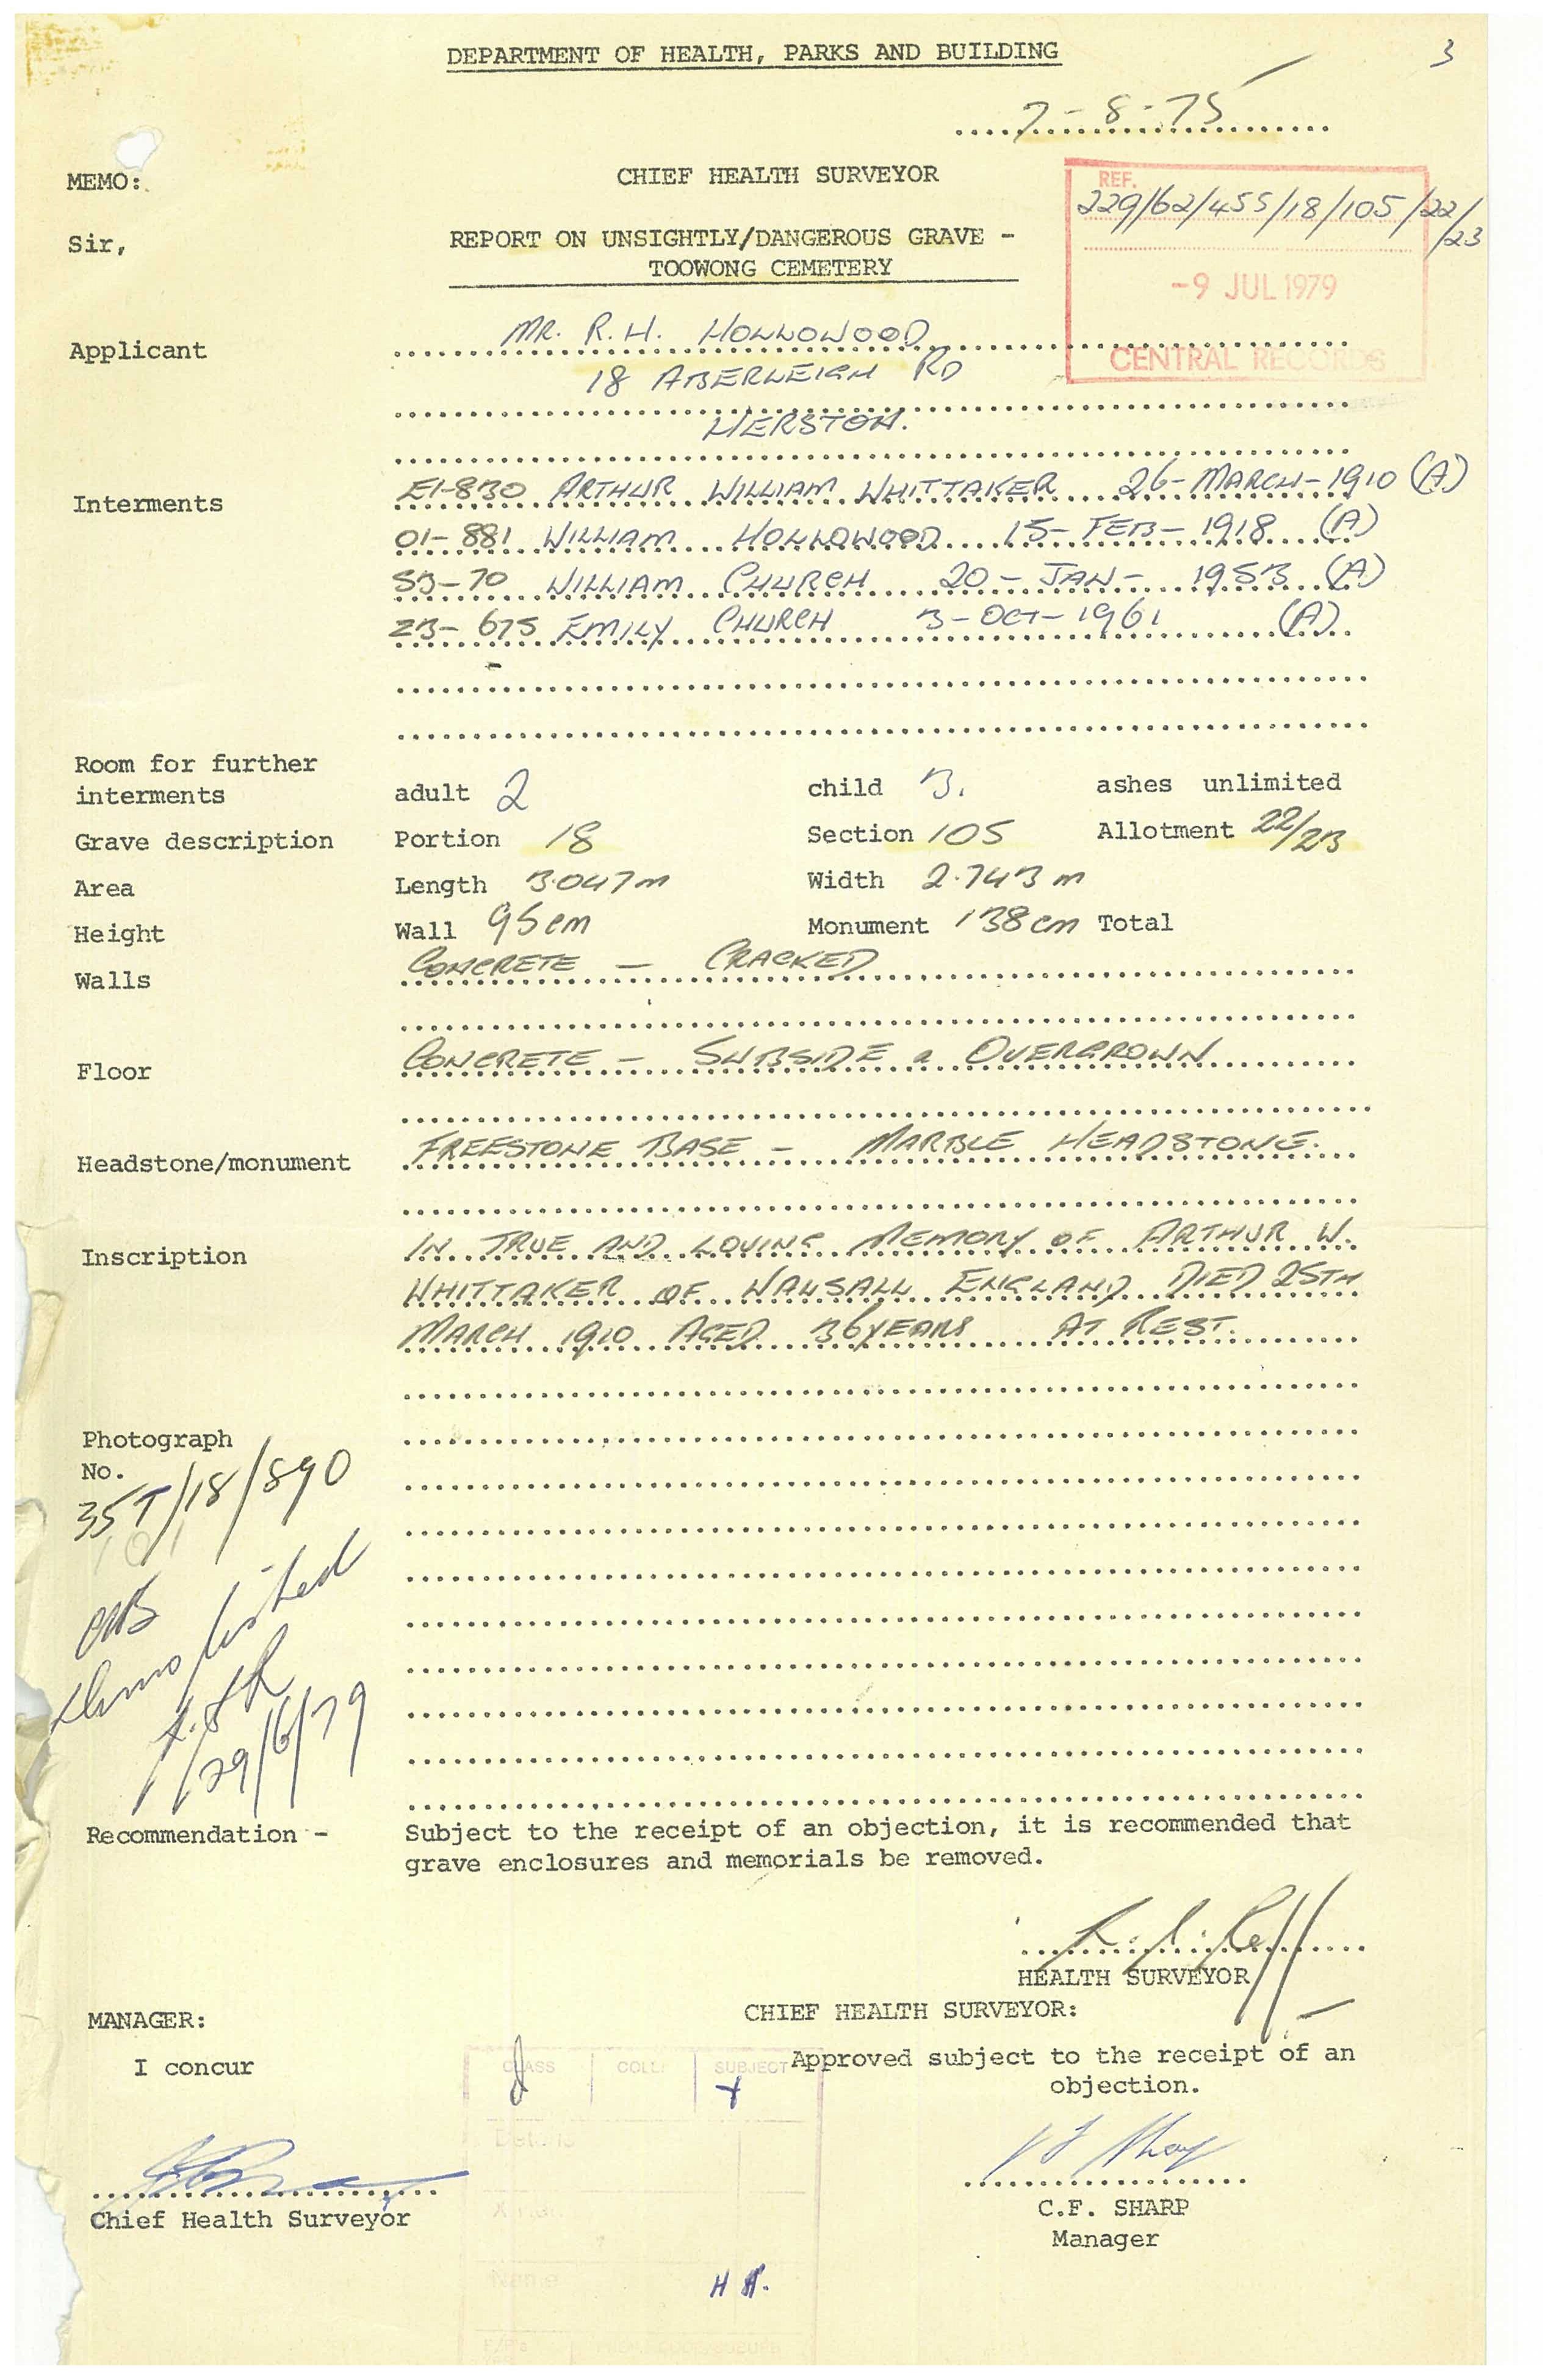 DEPARTMENT OF HEALTH, PARKS AND BUILDING
3
7-8-75
MEMO:
CHIEF HEALTH SURVEYOR
REF.
229/62/455/18/105/22/23
Sir,
REPORT ON UNSIGHTLY/DANGEROUS GRAVE -
TOOWONG CEMETERY
-9 JUL 1979
CENTRAL RECORDS
Applicant MR. R.H. HOLLOWOOD
18 ABERLEIGH RD
HERSTON.
Interments E1-830 ARTHUR WILLIAM WHITTAKER 26-MARCH-1910 (A)
01-881 WILLIAM HOLLOWOOD 15-FEB-1918 (A)
53-70 WILLIAM CHURCH 20-JAN-1953 (A)
23-675 EMILY CHURCH 3-OCT-1961 (A)
Room for further
interments adult 2 child 3. ashes unlimited
Grave description Portion 18 Section 105 Allotment 22/23
Area Length 3.047m Width 2.743 m
Height Wall 95cm Monument 138cm Total
Walls CONCRETE - CRACKED
Floor CONCRETE - SUBSIDE & OVERGROWN
Headstone/monument FREESTONE BASE - MARBLE HEADSTONE.
Inscription IN TRUE AND LOVING MEMORY OF ARTHUR W.
WHITTAKER OF WALSALL ENGLAND DIED 25TH
MARCH 1910 AGED 36 YEARS AT REST.
Photograph
No.
35T/18/890
listed
29/6/79
Recommendation - Subject to the receipt of an objection, it is recommended that
grave enclosures and memorials be removed.
HEALTH SURVEYOR
MANAGER:
CHIEF HEALTH SURVEYOR:
I concur
CLASS COLL. SUBJECT
Approved subject to the receipt of an
objection.
Details
Chief Health Surveyor
C.F. SHARP
Manager
Name